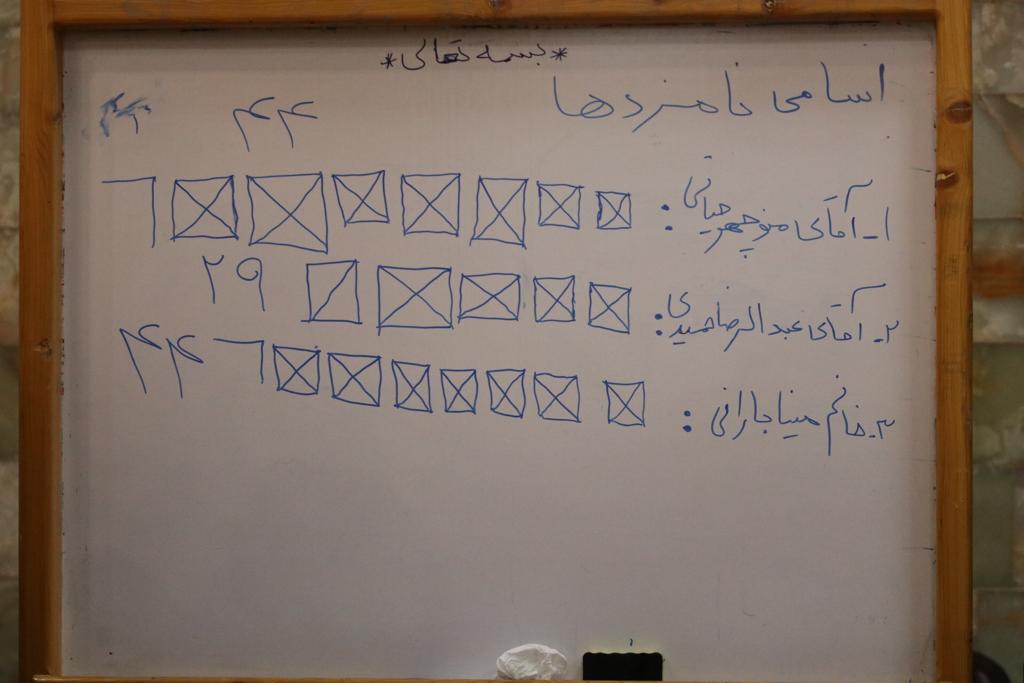 *بسمه تعالی*
اسامی نامزدها
۴۴
۱ـ آقای منوچهر حیاتی :
۲ـ آقای عبدالرضا حمیدی: ۲۹
۳ـ خانم مینا جارانی : ۴۴